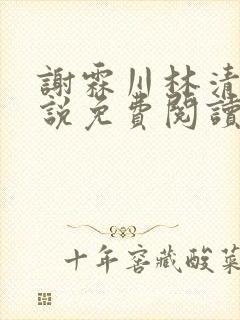 謝霖川林清
說免費閱讀
十年窖藏酸菜